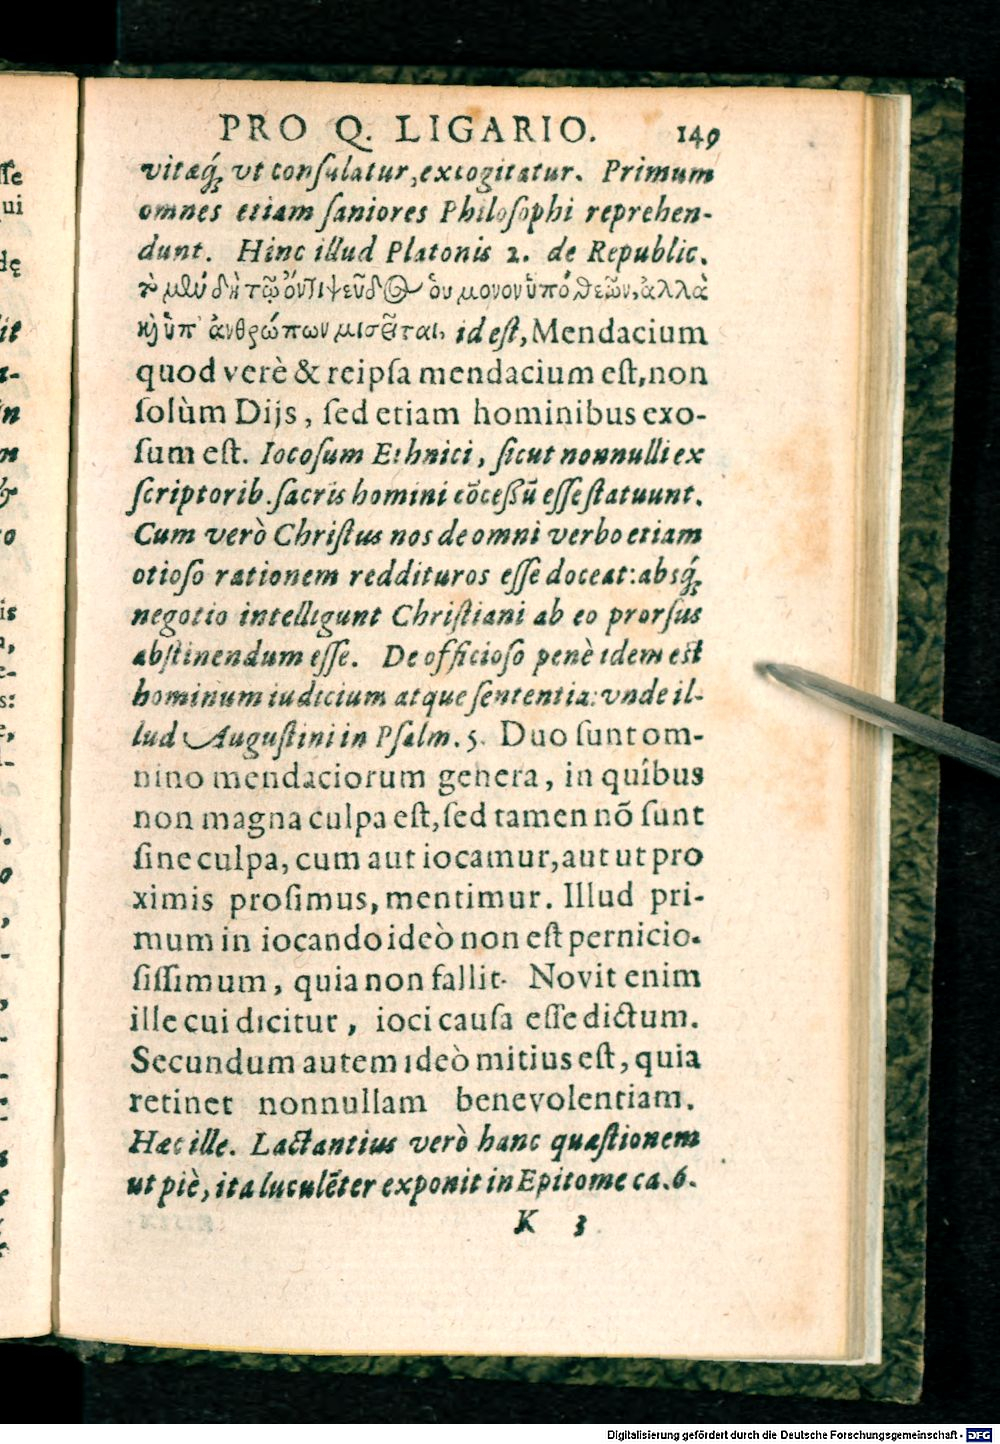 PRO Q. LIGARIO. 149
vitæq́; vt conſulatur, excogitatur. Primum
omnes etiam ſaniores Philoſophi reprehen-
dunt. Hinc illud Platonis 2. de Republic.
τὸ μὲν δὴ τῷ ὄντι ψεῦδος οὐ μόνον ὑπὸ θεῶν, ἀλλὰ
καὶ ὑπ' ἀνθρώπων μισεῖται, id eſt, Mendacium
quod verè & reipſa mendacium eſt, non
ſolùm Dijs, ſed etiam hominibus exo-
ſum eſt. Iocoſum Ethnici, ſicut nonnulli ex
ſcriptorib. ſacris homini cõceßũ eſſe ſtatuunt.
Cum verò Chriſtus nos de omni verbo etiam
otioſo rationem reddituros eſſe doceat: absq́;
negotio intelligunt Chriſtiani ab eo prorſus
abſtinendum eſſe. De officioſo penè idem est
hominum iudicium atque ſententia: vnde il-
lud Auguſtini in Pſalm. 5. Duo ſunt om-
nino mendaciorum genera, in quíbus
non magna culpa eſt, ſed tamen nõ ſunt
ſine culpa, cum aut iocamur, aut ut pro
ximis proſimus, mentimur. Illud pri-
mum in iocando ideò non eſt pernicio-
ſiſſimum, quia non fallit. Novit enim
ille cui dicitur, ioci cauſa eſſe dictum.
Secundum autem ideò mitius eſt, quia
retinet nonnullam benevolentiam.
Hæc ille. Lactantius verò hanc quæſtionem
ut piè, ita luculẽter exponit in Epitome ca. 6.
K 3
ſſe
qui
dę
Digitalisierung gefördert durch die Deutsche Forschungsgemeinschaft - DFG